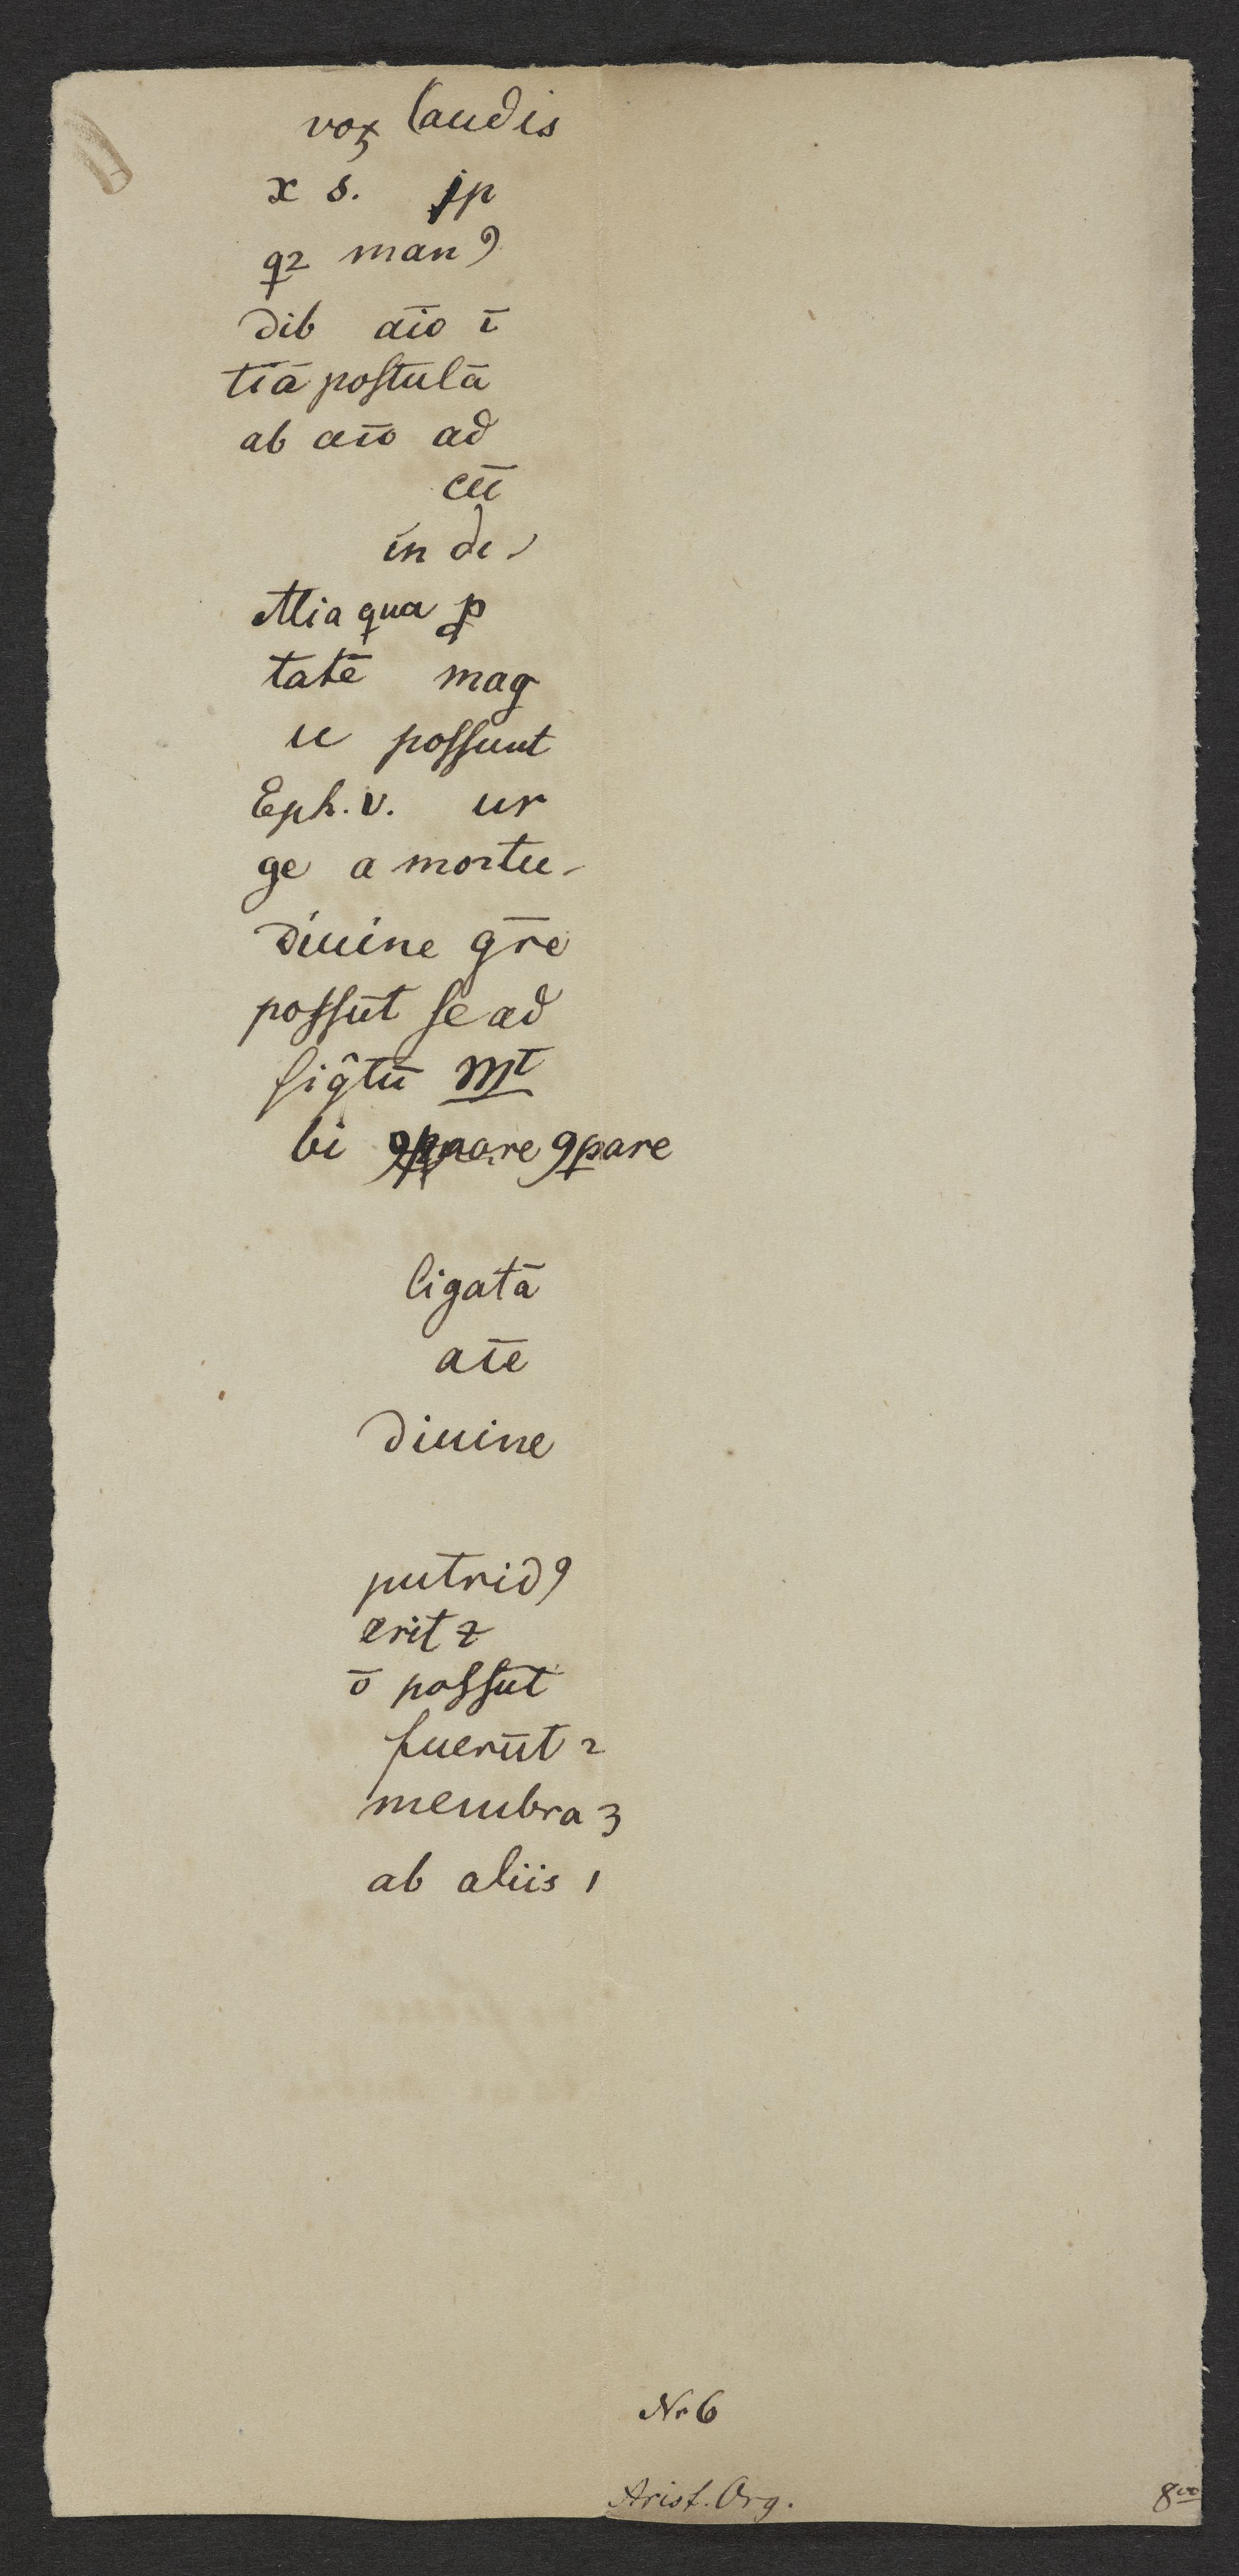 voꝝ laudis
x s. ip
qꝛ manꝯ
dib aīo ī
tiā postulā
ab aīo ad
cū
in di
Alia qua ꝓ
tatē mag
u possunt
Eph. v. ur
ge a mortu-
diuine gr̄e
possūt se ad
sig̑tū Mᵗ
bi ꝯꝑare
ligatā
aīe
diuine
putridꝯ
erit ⁊
ō possūt
fuerūt 2
membra 3
ab aliis 1
Nr 6
Arist. Org.
8ᵛᵒ